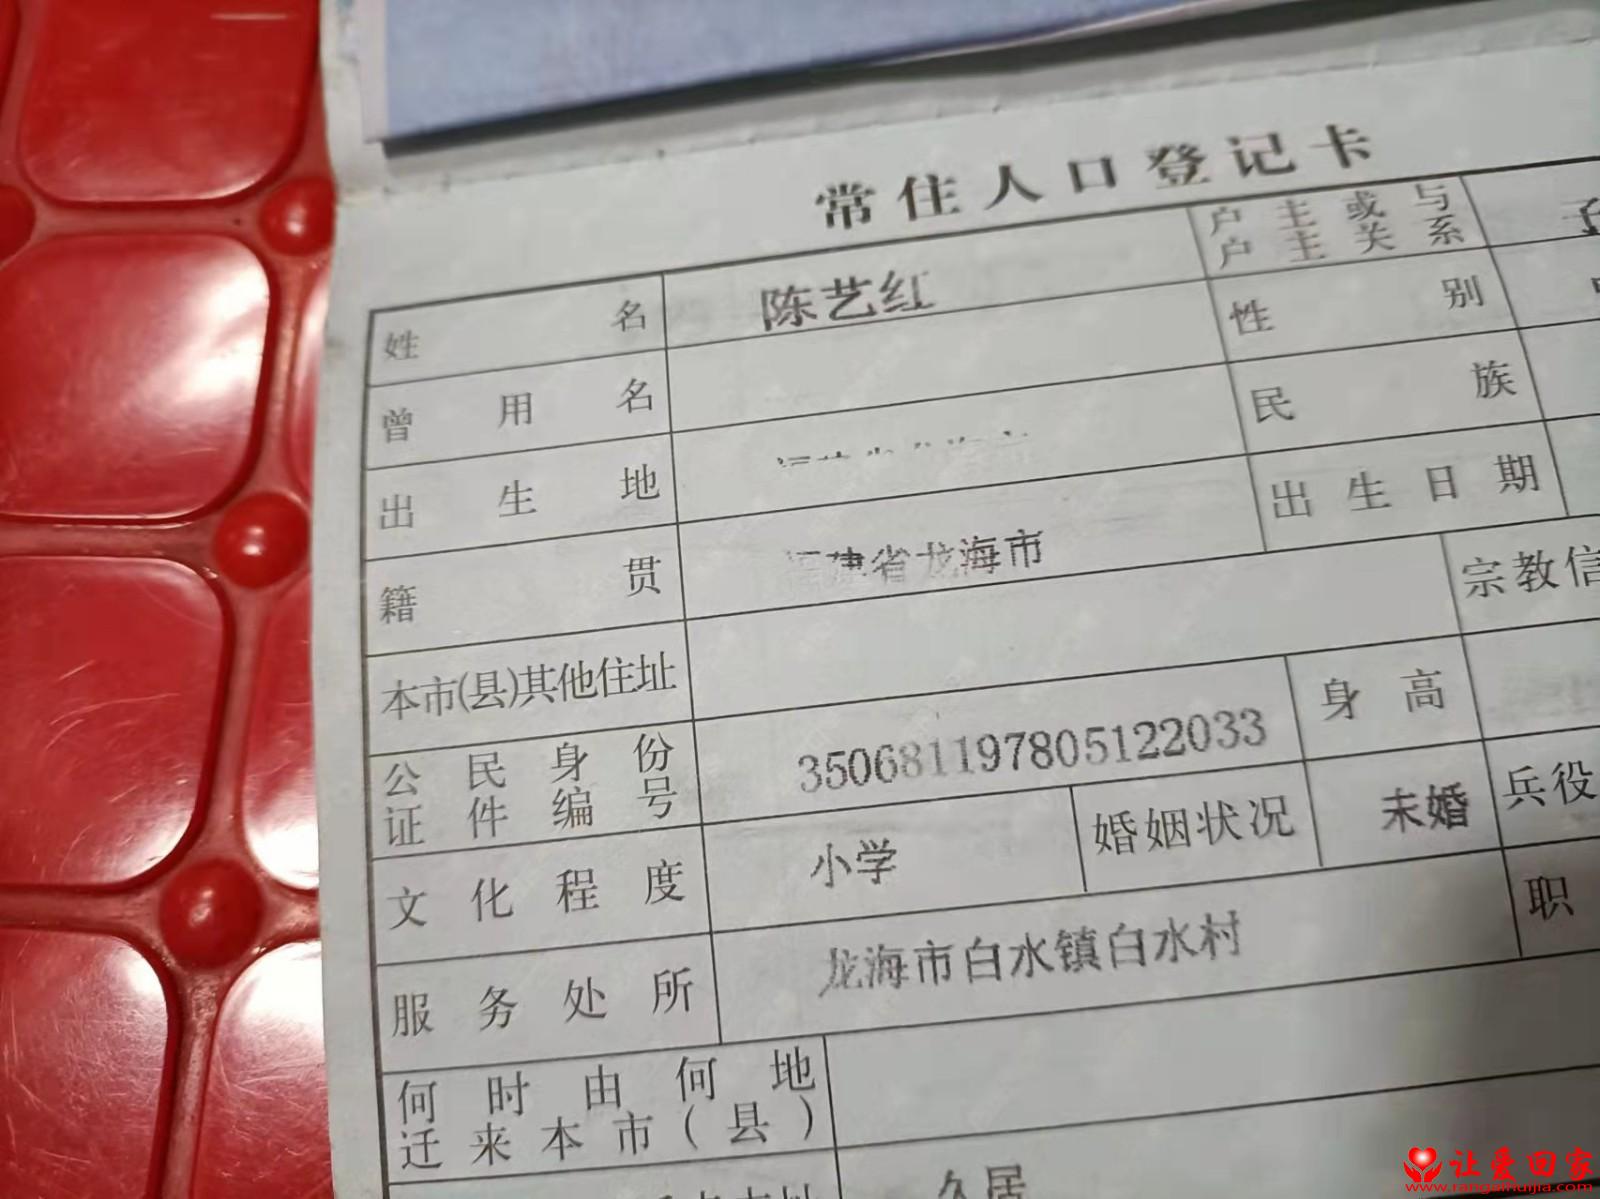 常住人口登记卡
姓名 陈艺红 户主或与户主关系 子
曾用名 性别
出生地 民族
籍贯 福建省龙海市 出生日期
本市(县)其他住址 宗教信
公民身份证件编号 350681197805122033 身高
文化程度 小学 婚姻状况 未婚 兵役
服务处所 龙海市白水镇白水村 职
何时由何地迁来本市(县)
久居
让爱回家
www.rangaihuijia.com